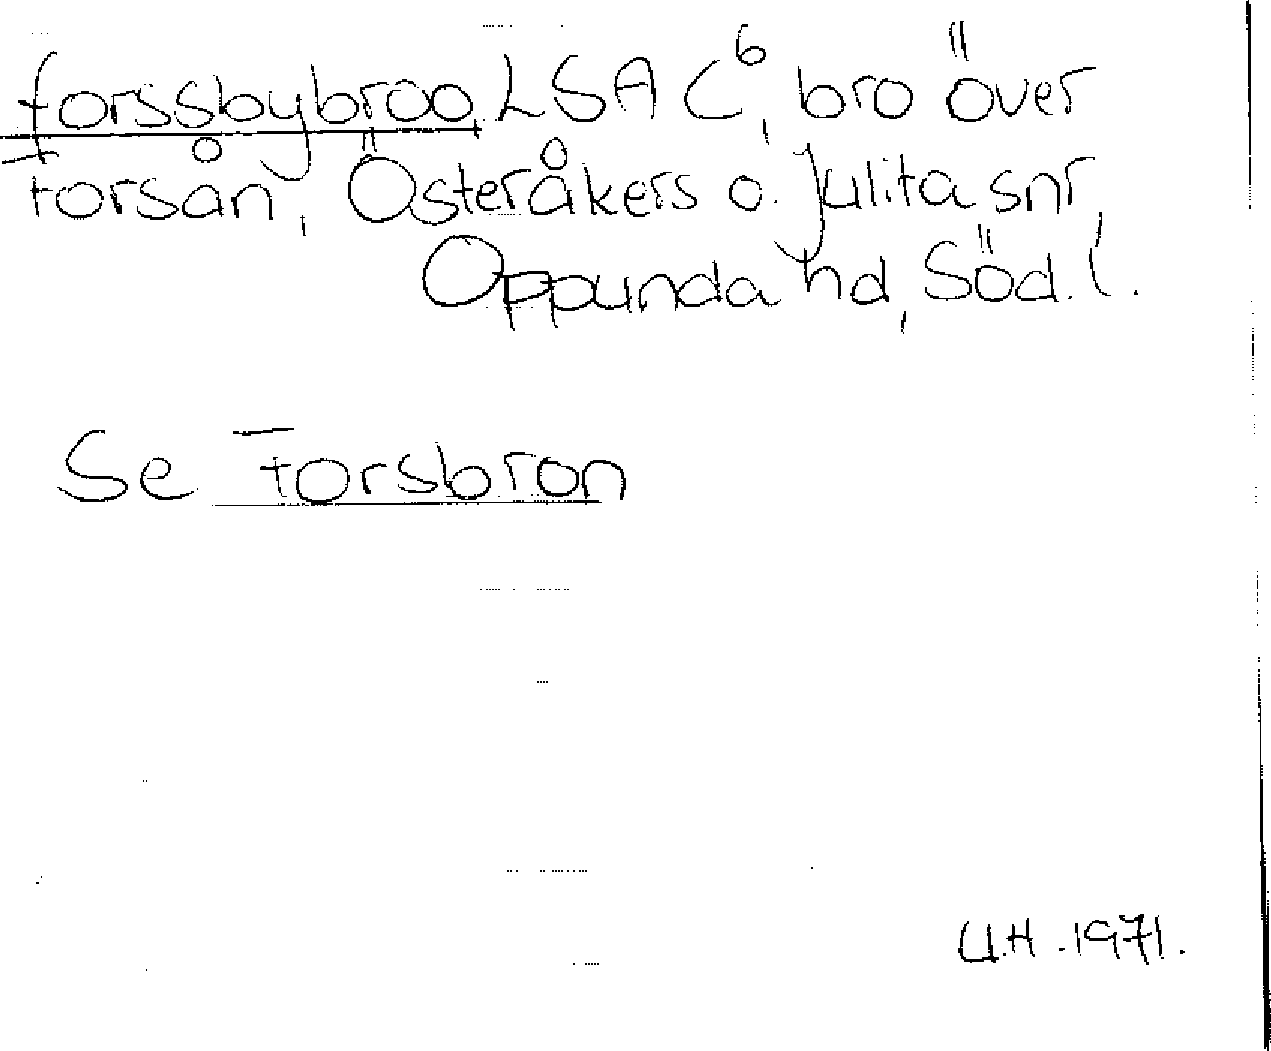 forssbybroo LSA C⁶, bro över
Forsån, Österåkers o. Julita snr,
Oppunda hd, Söd. l.
Se Forsbron
U.H. 1971.